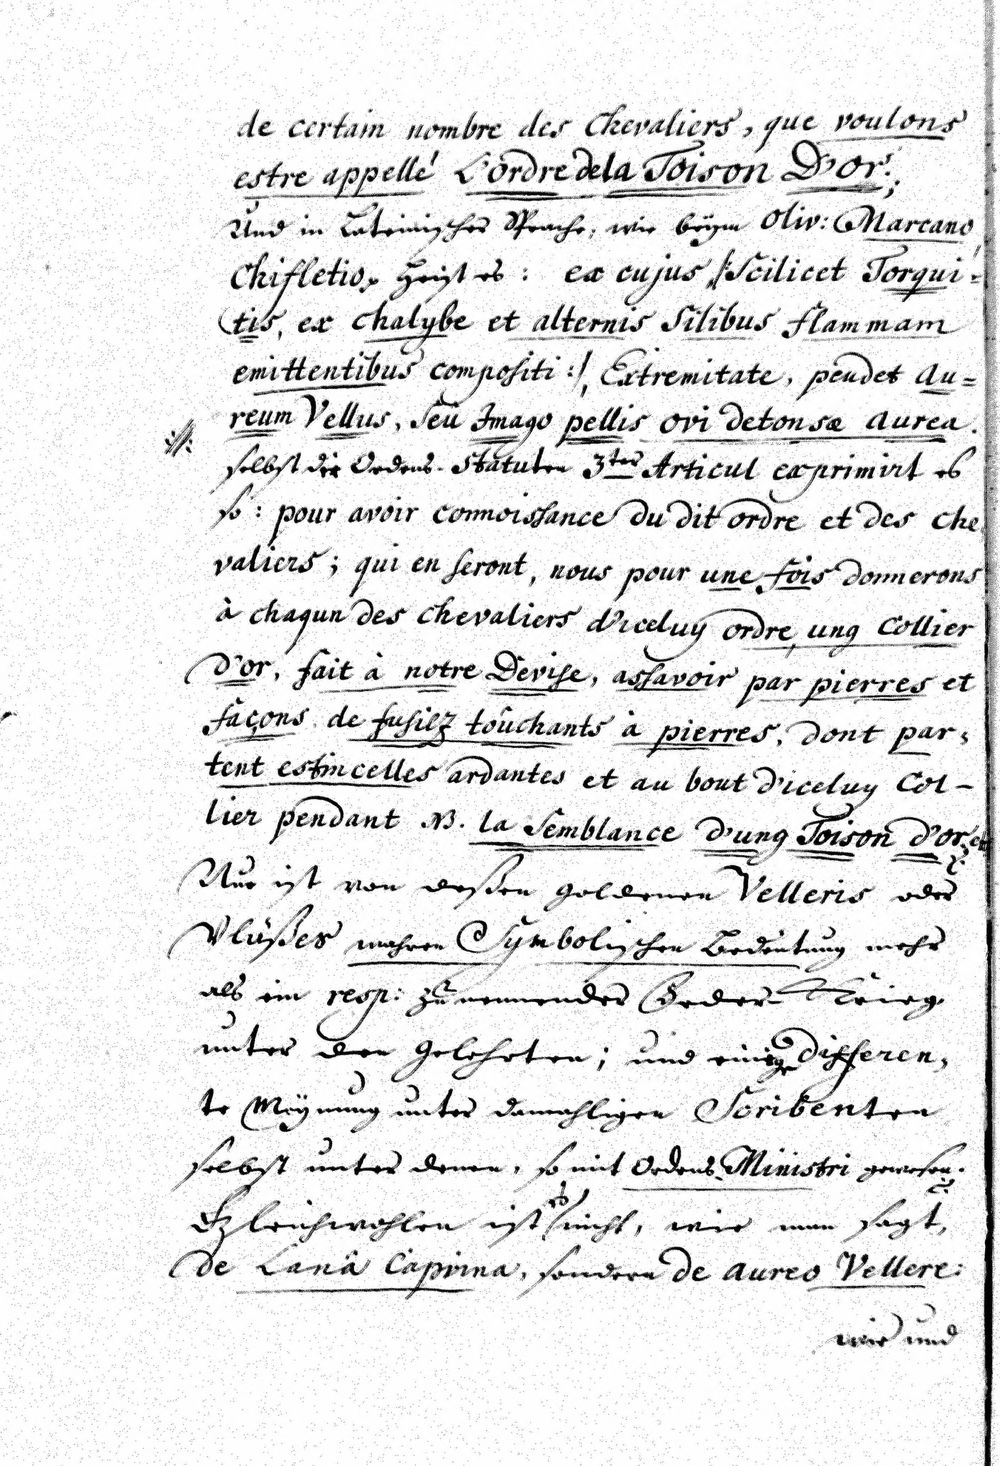 de certain nombre des Chevaliers, que voulons
estre appellé L'ordre de la Toison D'or;
Und in Lateinischer Sprache, wie beÿm Oliv: Marcano
Chifletio, heist es: ex cujus /:Scilicet Torqui-
tis, ex chalybe et alternis Silibus flammam
emittentibus compositi:/, Extremitate, pendet Au=
reum Vellus, seu Imago pellis ovi detonsæ aurea.
selbst der Ordens-Statuten 3ter Articul exprimirt es
so: pour avoir connoissance du dit ordre et des che
valiers; qui en seront, nous pour une fois donnerons
à chaqun des chevaliers d'iceluy ordre, ung Collier
D'or, fait à notre Devise, assavoir par pierres et
façons de fusilz touchants à pierres, dont par,
tent estincelles ardantes et au bout d'iceluy Col-
lier pendant NB. la Semblance d'ung Toison d'or,
Nur ist von dessen goldenen Velleris oder
Vlüßes wahren Symbolischen Bedeutung mehr
als ein resp: zu nennender Feder-Krieg
unter den Gelehrten; und einige differen,
te Meÿnung unter damahligen Scribenten
selbst unter denen, so mit Ordens-Ministri gewesen.
Gleichwohlen ist es nicht, wie man sagt,
de Lanâ Caprina, sondern de aureo Vellere:
wie und